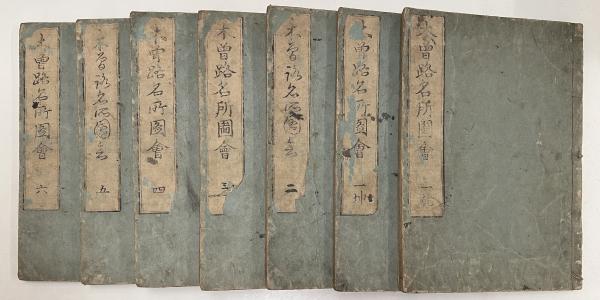 木曾路名所圖會 一乾
木曽路名所圖會 一坤
木曽路名所圖会 二
木曽路名所圖會 三
木曽路名所圖會 四
木曽路名所圖会 五
木曽路名所圖會 六